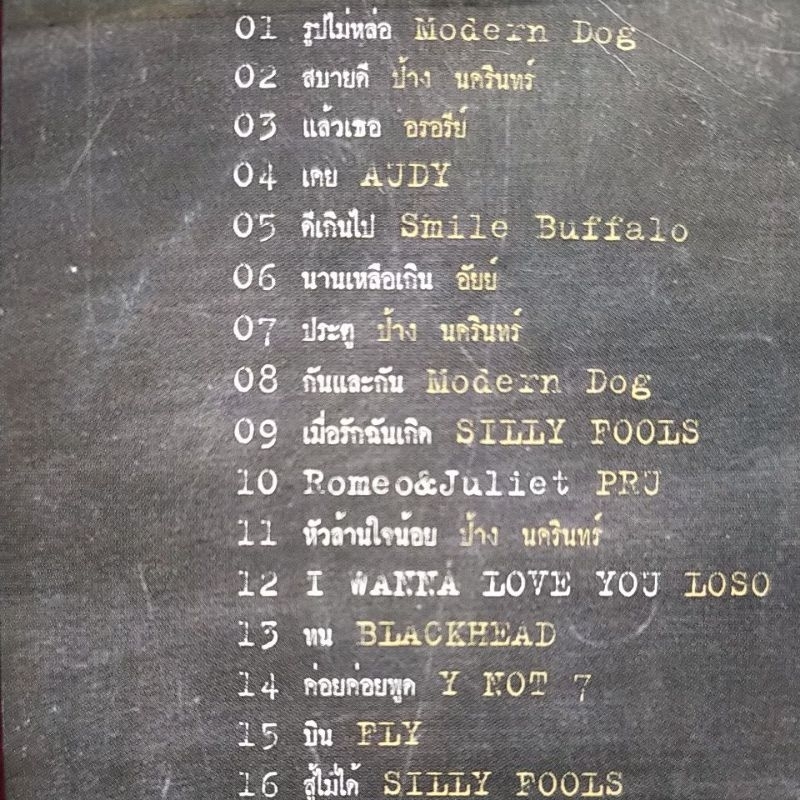 01 รูปไม่หล่อ Modern Dog
02 สบายดี ป้าง นครินทร์
03 แล้วเธอ อรอรีย์
04 เคย AUDY
05 ดีเกินไป Smile Buffalo
06 นานเหลือเกิน อัยย์
07 ประตู ป้าง นครินทร์
08 กันและกัน Modern Dog
09 เมื่อรักฉันเกิด SILLY FOOLS
10 Romeo&Juliet PRU
11 หัวล้านใจน้อย ป้าง นครินทร์
12 I WANNA LOVE YOU LOSO
13 ทน BLACKHEAD
14 ค่อยค่อยพูด Y NOT 7
15 บิน FLY
16 สู้ไม่ได้ SILLY FOOLS